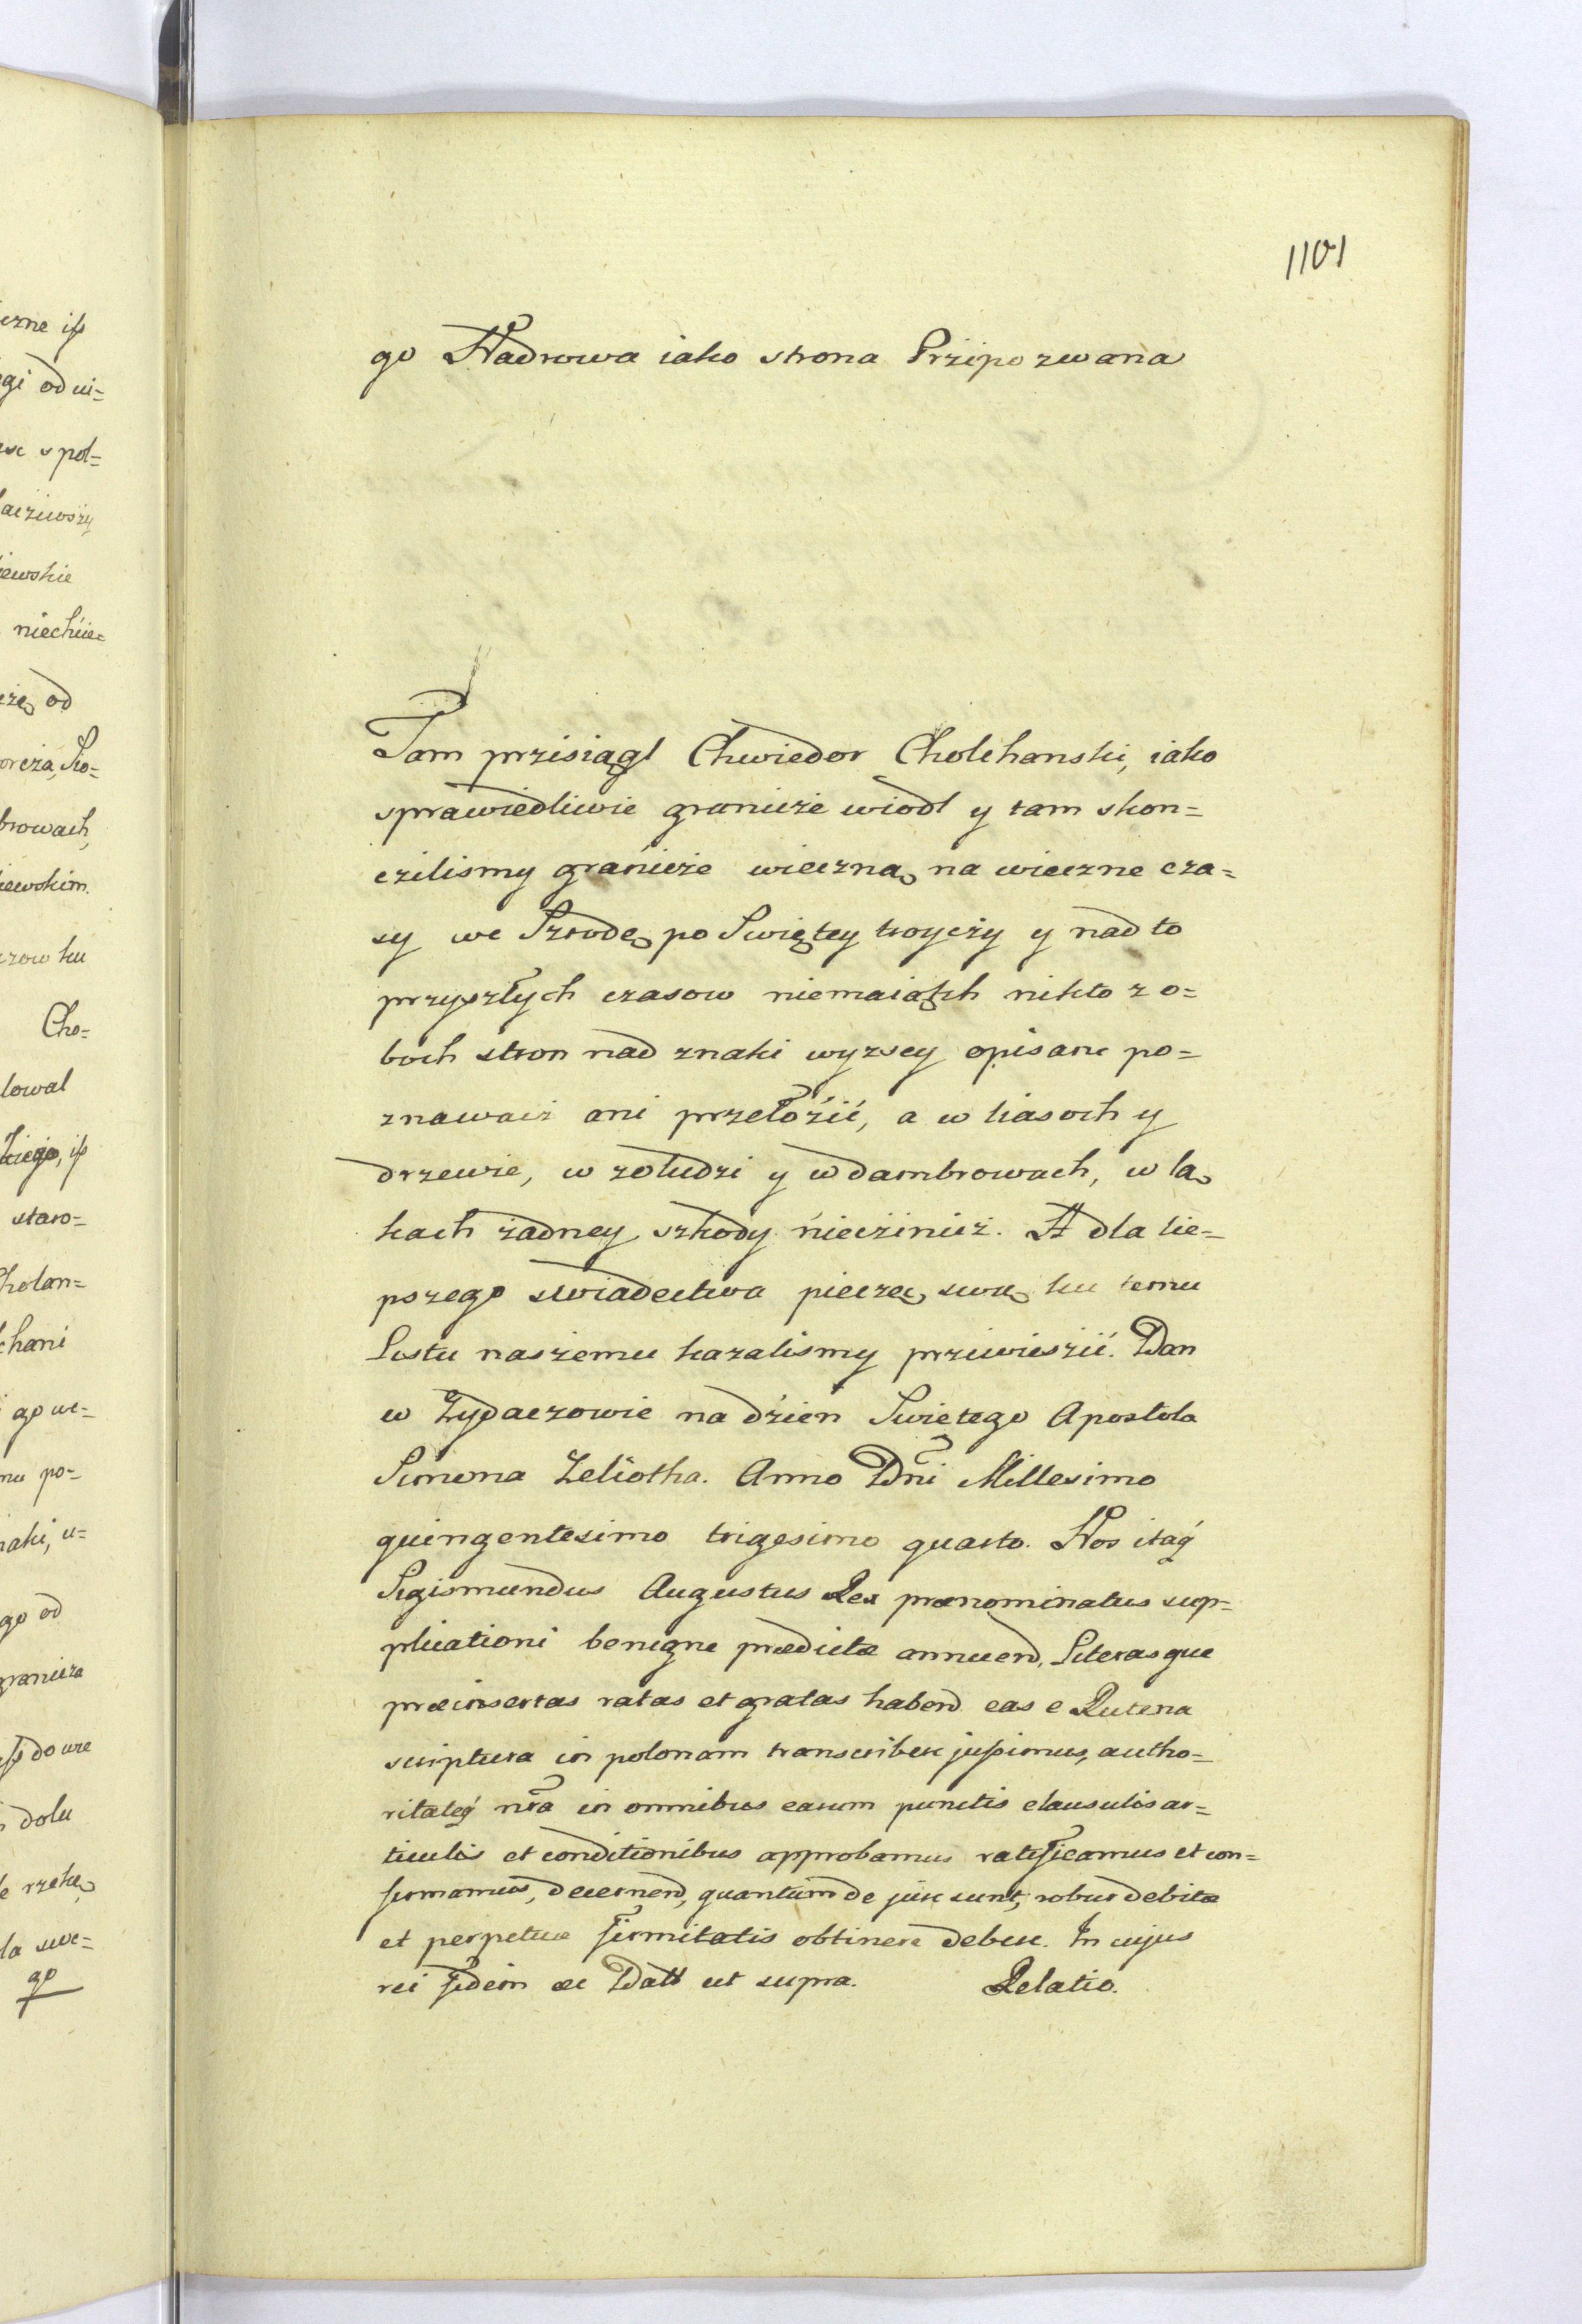 1101
go Nadrowa iako strona Prżipozwana
Tam przisiągl Chwiedor Cholchanski, iako
sprawiedliwie granicże wiodl y tam skon=
czilismy granicże wieczną na wieczne cza=
sy we Szrodę po Swiętey troycży y nad to
przyszłych czasow niemaiąkh nikto z o=
boch stron nad znaki wyzsey opisane po=
znawacż ani przełożić, a w liasoch y
drzewie, w zołudzi y w dambrowach, w lą
kach żadney szkody niecżinicż. A dla lie=
pszego swiadectwa pieczęć swą ku temu
Listu naszemu kazalismy prziwieszić. Dan
w Zydaczowie na dźien Swiętego Apostola
Simona Zeliotha. Anno Dñi Millesimo
quingentesimo trigesimo quarto. Nos itaq́
Sigismundus Augustus Rex prænominatus sup=
plicationi benigne prædictæ annuend, Literasque
præinsertas ratas et gratas habend eas e Rutena
scriptura in polonam transcribere jußimus, autho=
ritateq́ nr̃a in omnibus earum punctis clausulis ar=
ticulis et conditionibus approbamus ratificamus et con=
firmamus, decernend, quantum de jure sunt, robur debitæ
et perpetuæ firmitatis obtinere debere. In cujus
rei fidem &c Datt ut supra. Relatio.